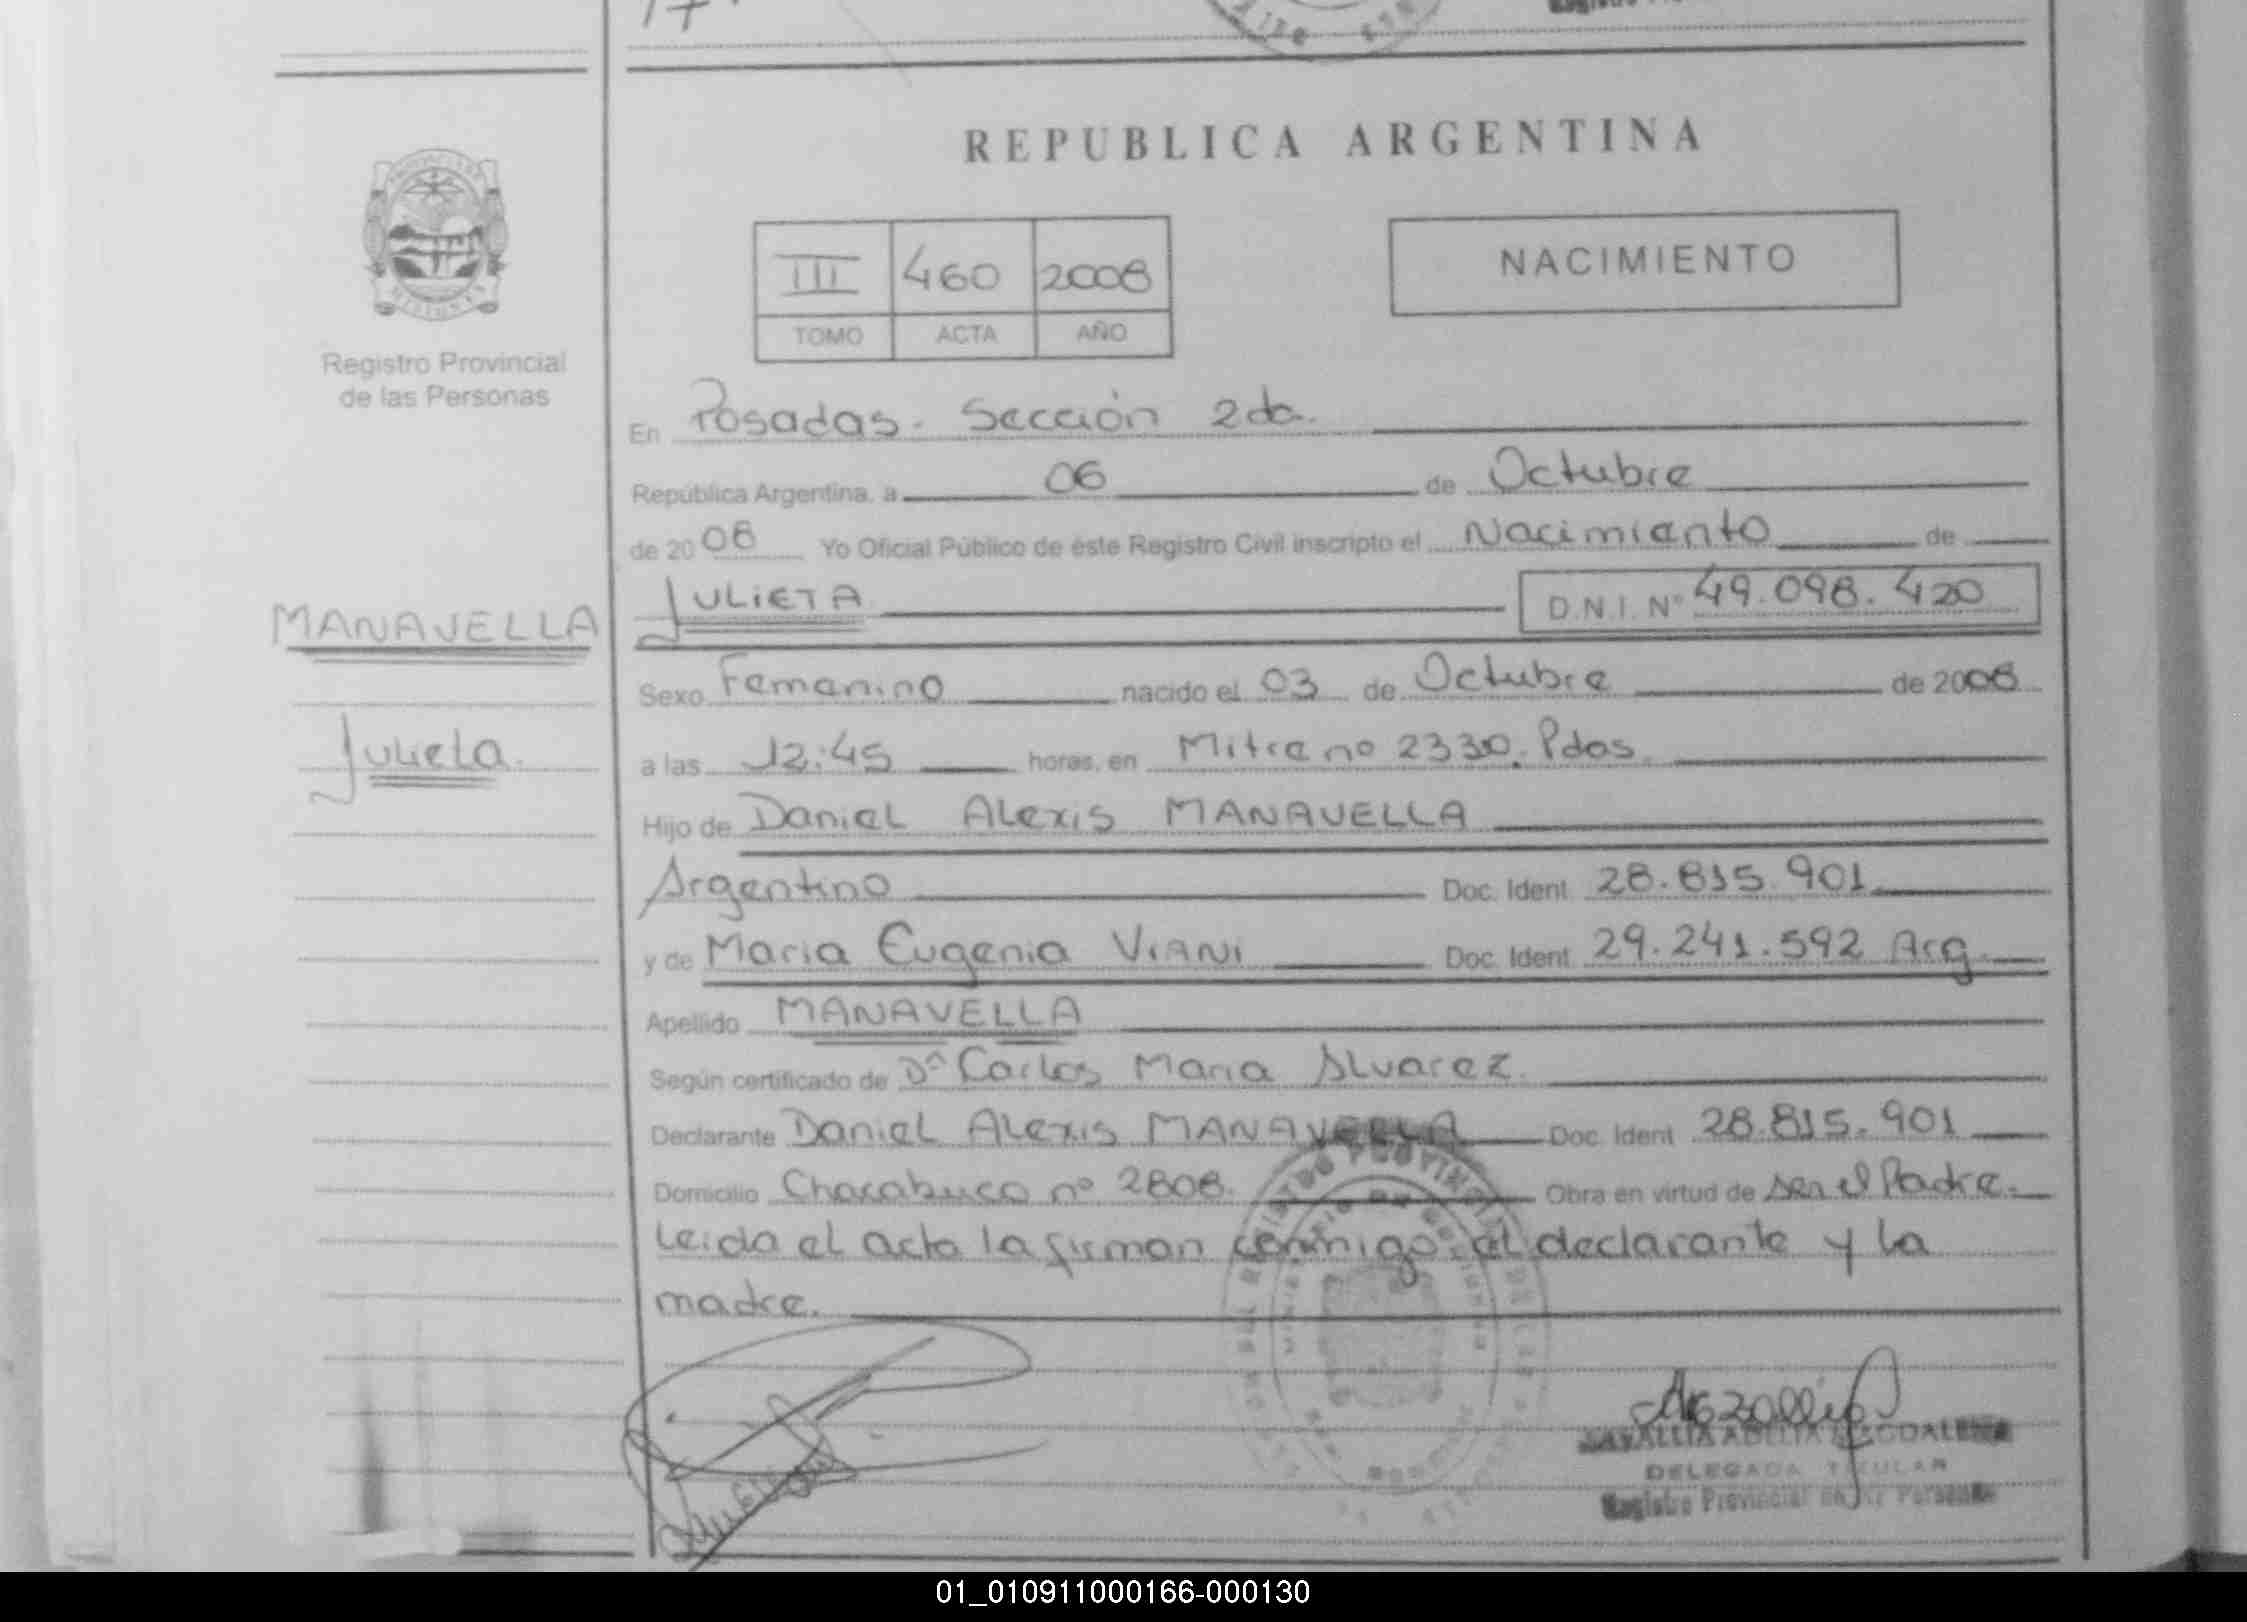 REPUBLICA ARGENTINA
III 460 2008
TOMO ACTA AÑO
NACIMIENTO
Registro Provincial
de las Personas
MANAVELLA
Julieta.
En Posadas. Sección 2da.
República Argentina, a 06 de Octubre
de 2008 Yo Oficial Público de éste Registro Civil inscripto el Nacimiento de
JULIETA D.N.I. Nº 49.098.420
Sexo Femenino nacido el 03 de Octubre de 2008
a las 12:45 horas, en Mitre nº 2330. Pdas.
Hijo de Daniel Alexis MANAVELLA
Argentino Doc. Ident. 28.815.901
y de Maria Eugenia VIANI Doc. Ident. 29.241.592 Arg.
Apellido MANAVELLA
Según certificado de Dº Carlos Maria Alvarez.
Declarante Daniel Alexis MANAVELLA Doc. Ident. 28.815.901
Domicilio Chacabuco nº 2808. Obra en virtud de ser el Padre.
Leida el acta la firman conmigo: el declarante y la
madre.
ADELIA MAGDALENA
DELEGADA TITULAR
Registro Provincial de las Personas
01_010911000166-000130